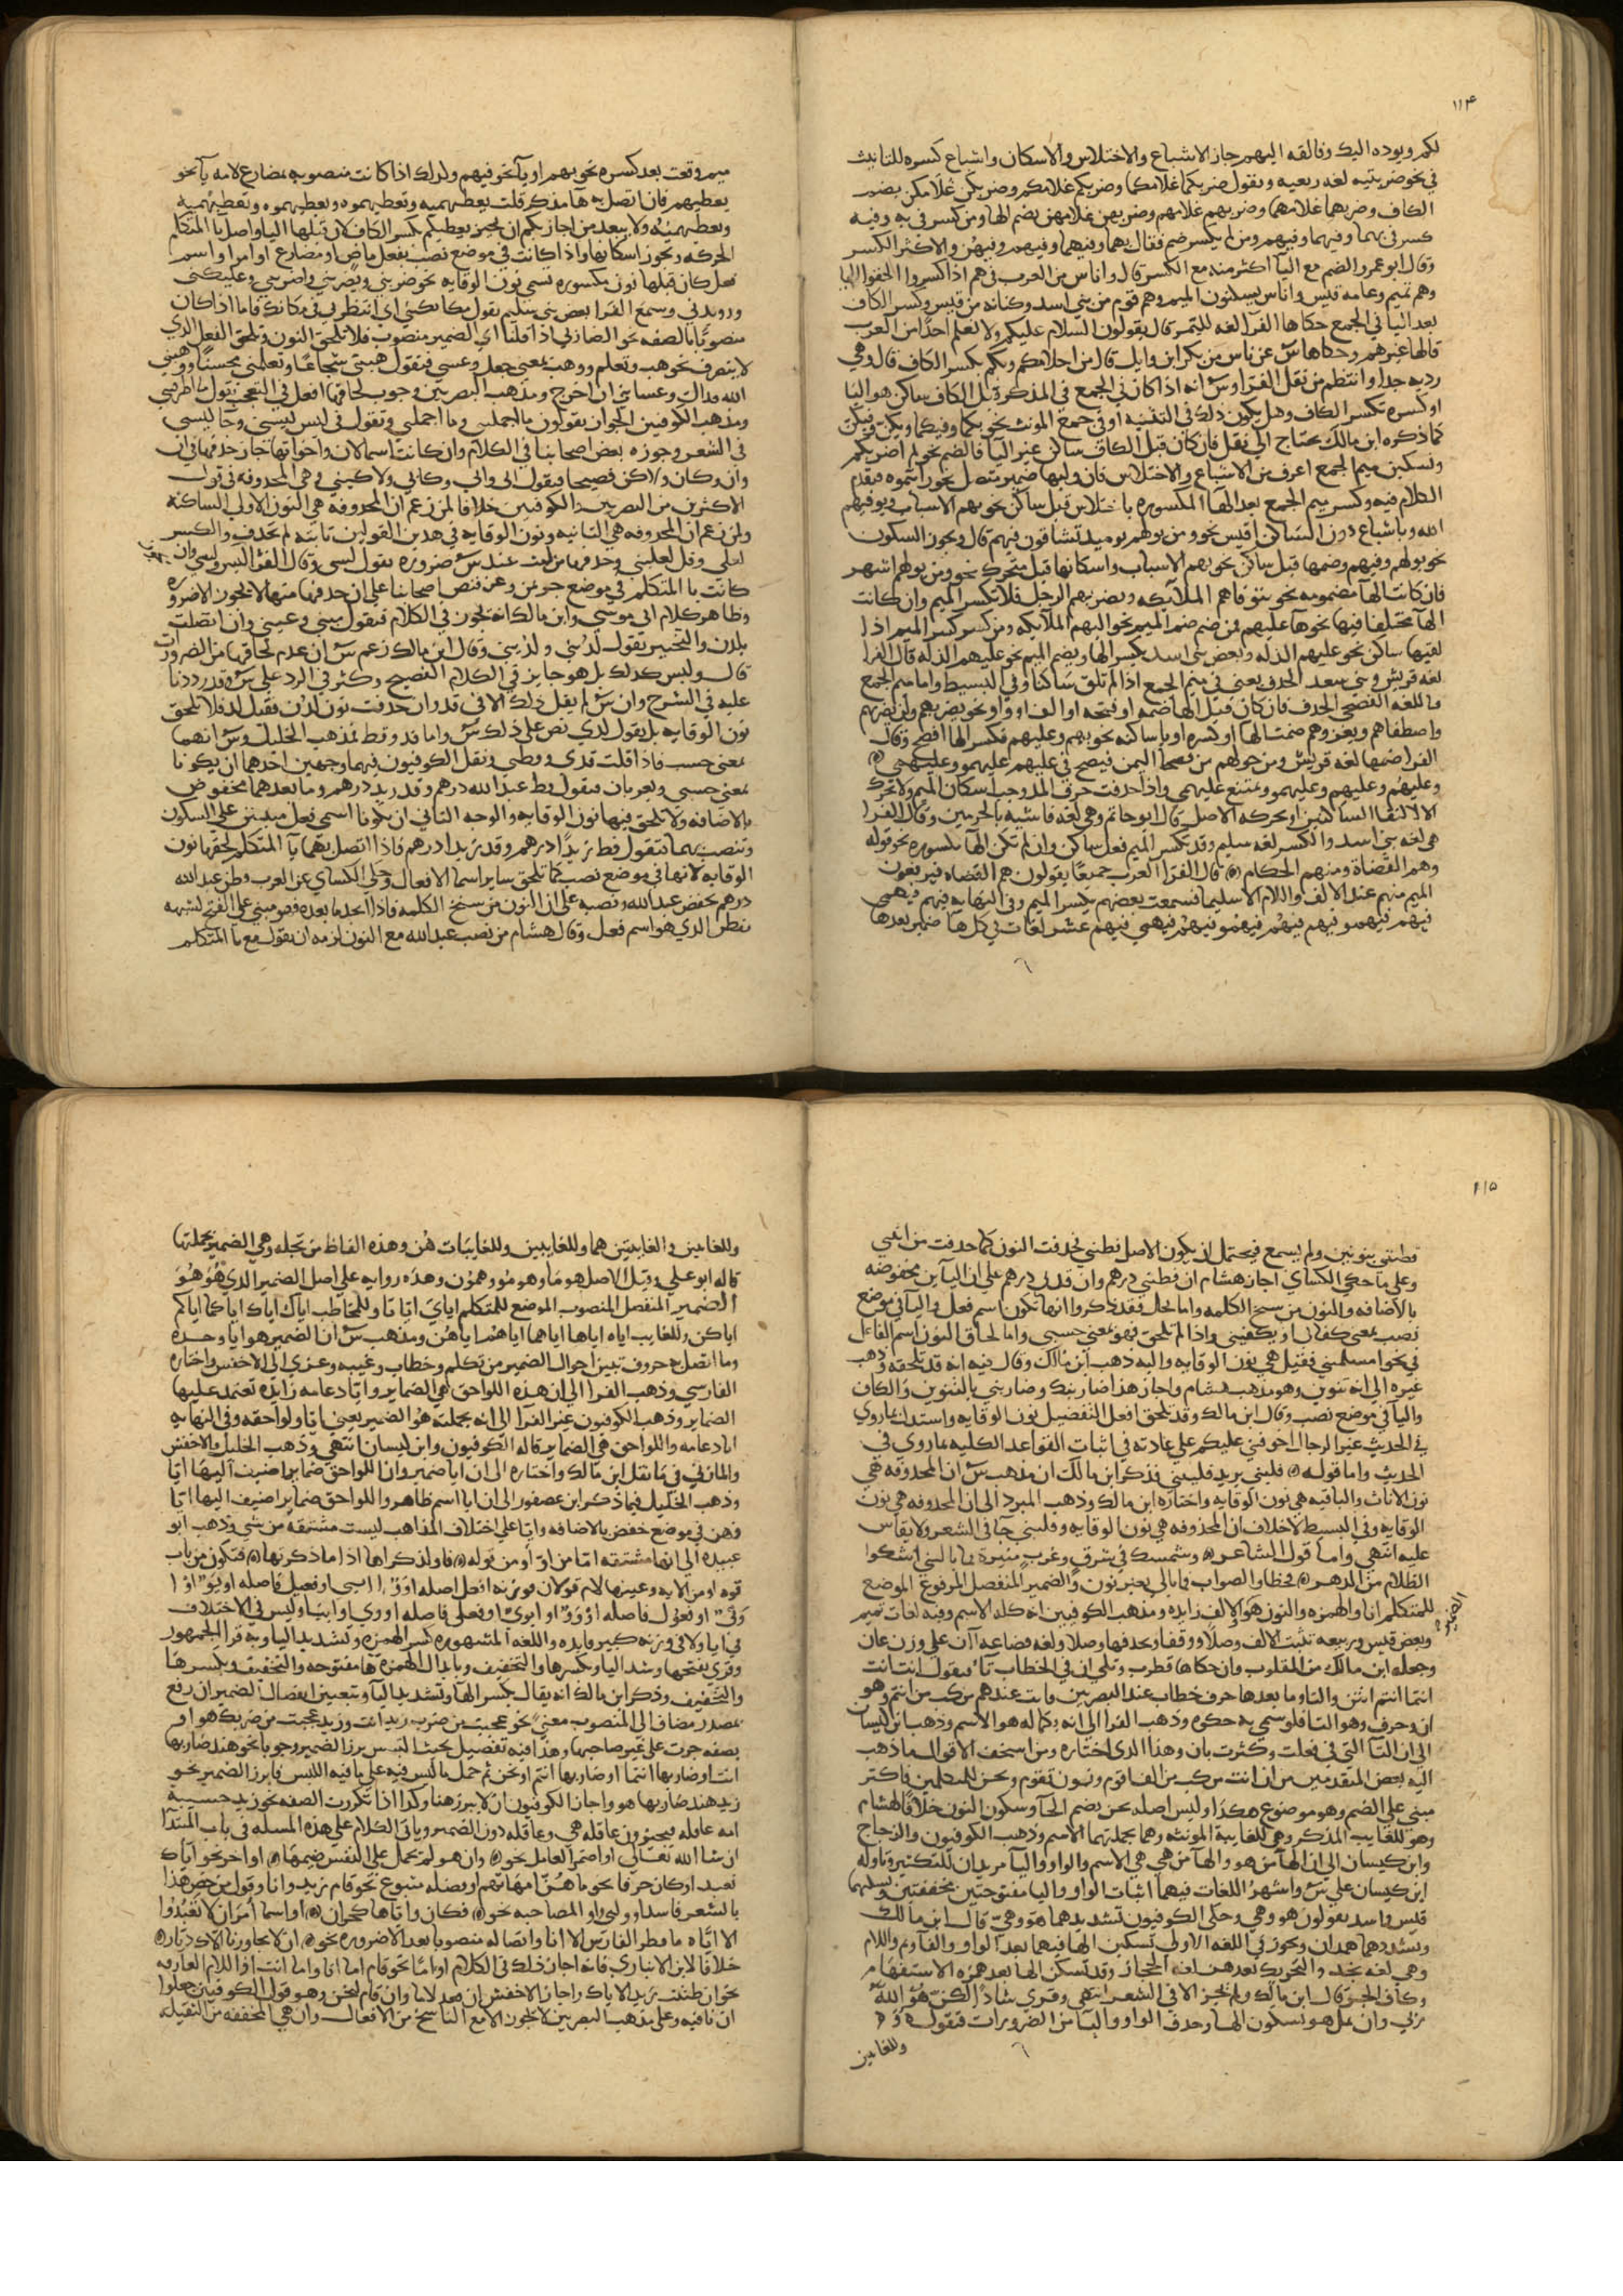 ١١٤
لكم ويوده اليك وفالقه اليهم جاز الاشباع والاختلاس والاسكان واشباع كسره للتانيث
في نحو ضربتيه لغه ربعيه ويقول ضربكما غلامكما وضربكم غلامكم وضربكن غلامكن بضم
الكاف وضربهما غلامهما وضربهم غلامهم وضربهن غلامهن بضم الها ومن كسر في به وفيه
كسر في بهما وفيهما وفيهم ومن لم يكسر ضم فقال بهما وفيهما وفيهم وفيهن والاكثر الكسر
وقال ابو عمرو الضم مع اليا اكثر منه مع الكسر قال واناس من العرب في هم اذا كسروا الحقوا اليا
وهم تميم وعامه قيس واناس يسكنون الميم وهم قوم من بني اسد وكنانه من قيس وكسر الكاف
بعد اليا في الجمع حكاها الفرا لغه للنمر قال يقولون السلام عليكم ولا نعلم احدا من العرب
قالها غيرهم وحكاها س عن ناس من بكر ابن وايل قال من احلامكم وبكم بكسر الكاف قال وهي
رديه جدا وانتظم من نقل الفرا وس انه اذا كان في الجمع في المذكر قبل الكاف ساكن هو اليا
او كسره تكسر الكاف وهل يكون ذلك في التثنيه او في جمع المونث نحو بكما وفيكما وبكن وفيكن
كما ذكره ابن مالك يحتاج الى نقل فان كان قبل الكاف ساكن غير اليا فالضم نحو لم اضربكم
وتسكين ميم الجمع اعرف من الاشباع والاختلاس فان وليها ضمير متصل نحو رايتموه فيقدم
الكلام فيه وكسر ميم الجمع بعد الها المكسوره باختلاس قبل ساكن نحو بهم الاسباب ويوفيهم
الله وباشباع دون الساكن اقيس نحو ومن يولهم يوميذ تشاقون فيهم قال ويجوز السكون
نحو يولهم وفيهم وضمها قبل ساكن نحو بهم الاسباب واسكانها قبل متحرك نحو ومن يولهم اشهر
فان كانت الها مضمومه نحو يتوفاهم الملايكه ويضربهم الرجل فلا تكسر الميم وان كانت
الها مختلفا فيها نحوها عليهم فمن ضم ضم الميم نحو اليهم الملايكه ومن كسر كسر الميم اذا
لقيها ساكن نحو عليهم الذله وبعض بني اسد بكسر الها ويضم الميم نحو عليهم الذله قال الفرا
لغه قريش وبني سعد الحذف يعني في ميم الجمع اذا لم تلق ساكنا وفي البسيط واما ميم الجمع
فاللغه الفصحى الحذف فان كان قبل الها ضمه او فتحه او الف او واو نحو يضربهم ولن يضربهم
واصطفاهم ويغزوهم ضمت الها او كسره او يا ساكنه نحو بهم وعليهم فكسر الها افصح وقال
الفرا ضمها لغه قريش ومن حولهم من فصحا اليمن فيصح في عليهم عليهمو وعليهمي
وعليهم وعليهم وعليهمو ويمتنع عليهمي واذا حذفت حرف المد وجب اسكان الميم ولا تحرك
الا لالتقا الساكنين او بحركه الاصل قال ابو حاتم وهي لغه فاشيه بالحرمين وقال الفرا
هي لغه بني اسد والكسر لغه سليم وقد تكسر الميم قبل ساكن وان لم تكن الها مكسوره نحو قوله
وهم القضاة ومنهم الحكام قال الفرا العرب جميعا يقولون هم القضاه فيرفعون
الميم منهم عند الالف واللام الا سليما فسمعت بعضهم يكسر الميم وفي النهايه فيهم فيهمي
فيهم فيهمو فيهم فيهم فيهمو فيهم فيهمي فيهم عشر لغات في كل ها ضمير بعدها
ميم وقعت بعد كسره نحو بهم او يا نحو فيهم ولذلك اذا كانت منصوبه بمضارع لامه يا نحو
يعطيهم فان اتصل به ها مذكر قلت يعطيهميه وتعطيهموه ويعطيهموه وتعطيهميه
ويعطيهمه ولا يبعد من اجاز بكم ان يجيز يعطيكم بكسر الكاف لان قبلها اليا واصل يا المتكلم
الحركه ويجوز اسكانها واذا كانت في موضع نصب بفعل ماض او مضارع او امر او اسم
فعل كان قبلها نون مكسوره تسمى نون الوقايه نحو ضربني ويضربني واضربني وعليكني
ورويدني وسمع الفرا بعض بني سليم يقول مكانكني اي انتظرني في مكانك فاما اذا كان
منصوبا بالصفه نحو الضاربي اذا قلنا اي الضمير منصوب فلا تلحق النون وتلحق الفعل الذي
لا يتصرف نحو هب وتعلم ووهب بمعنى جعل وعسى فتقول هبني شجاعا وتعلمني محسنا ووهبني
الله فداك وعساني ان اخرج ومذهب البصريين وجوب لحاقها افعل في التعجب تقول ما اظرفني
ومذهب الكوفيين الجواز يقولون ما اجملني وما اجملي وتقول في ليس ليسني وجا ليسي
في الشعر وجوزه بعض اصحابنا في الكلام وان كانت اسما لان واخواتها جاز حذفها في ان
وان وكان ولكن فصيحا فيقول اني واني وكاني ولا كيني وهي المحذوفه في قول
الاكثرين من البصريين والكوفيين خلافا لمن زعم ان المحذوفه هي النون الاولى الساكنه
ولمن زعم ان المحذوفه هي الثانيه ونون الوقايه في هذين القولين ثابته لم تحذف والكسر
لعلي وقل لعلني وحذفها من ليت عند س ضروره يقول ليتي وقال الفرا ليتني وليتي وان
كانت يا المتكلم في موضع جر بمن وعن فنص اصحابنا على ان حذفها منها لا يجوز الا ضروره
وظاهر كلام ابي موسى وابن مالك انه يجوز في الكلام فيقول مني وعني وان اتصلت
بلدن والتخيير تقول لدني ولدني وقال ابن مالك زعم س ان عدم لحاقها من الضرورات
قال وليس كذلك بل هو جايز في الكلام الفصيح وكثر في الرد على س وقد رددنا
عليه في الشرح وان س لم يقل ذلك الا في قد وان حذفت نون لدن فقيل لد فلا تلحق
نون الوقايه بل يقول لدي نص على ذلك س واما قد وقط فمذهب الخليل وس انهما
بمعنى حسب فاذا قلت قدي وقطي ونقل الكوفيون فيهما وجهين احدهما ان يكونا
بمعنى حسبي ويعربان فيقول قط عبد الله درهم وقد زيد درهم وما بعدهما مخفوض
بالاضافه ولا تلحق فيهما نون الوقايه والوجه الثاني ان يكونا اسمي فعل مبنيين على السكون
وتنصب بهما فتقول قط زيدا درهم وقد زيدا درهم فاذا اتصل بهما يا المتكلم لحقها نون
الوقايه لانها في موضع نصب كما تلحق ساير اسما الافعال وحكى الكساي عن العرب وقطن عبد الله
درهم بخفض عبد الله ونصبه على ان النون من سنخ الكلمه
بقطن الذي هو اسم فعل وقال هشام من نصب عبد الله مع النون لزمه ان يقول مع يا المتكلم
١١٥
قطنني بنونين ولم يسمع فيحتمل ان يكون الاصل قطنني فحذفت النون كما حذفت من انني
وعلى ما حكى الكساي اجاز هشام ان قطني درهم وان قدني درهم على ان الياين مخفوضه
بالاضافه والنون من سنخ الكلمه واما بجل فقد ذكروا انها تكون اسم فعل واليا في موضع
نصب بمعنى كفاني او يكفيني واذا لم تلحق فهو بمعنى حسبي واما لحاق النون اسم الفاعل
في نحو امسلمني فقيل هي نون الوقايه واليه ذهب ابن مالك وقال فيه انه قد تلحقه وذهب
غيره الى انه تنوين وهو مذهب هشام واجاز هذا ضاربنك وضاربني بالتنوين والكاف
واليا في موضع نصب وقال ابن مالك وقد تلحق افعل التفضيل نون الوقايه واستدل بما روي
في الحديث غير الدجال اخوفني عليكم على عادته في اثبات القواعد الكليه بما روي في
الحديث واما قوله فليني يريد فلينني فذكر ابن مالك ان مذهب س ان المحذوفه هي
نون الاناث والباقيه هي نون الوقايه واختاره ابن مالك وذهب المبرد الى ان المحذوفه هي نون
الوقايه وفي البسيط لا خلاف ان المحذوفه هي نون الوقايه وفليني جا في الشعر ولا يقاس
عليه انتهى واما قول الشاعر وشمسك في شرق وغرب منيرة فما بالني اشكوا
الظلام من الدهر فخطا والصواب فما بالي بغير نون والضمير المنفصل المرفوع الموضع
للمتكلم انا والهمزه والنون هو والالف زايده ومذهب الكوفيين انه كله الاسم وفيه لغات تميم
وبعض قيس وربيعه تثبت الالف وصلا ووقفا وتحذفها وصلا ولغه قضاعه آن على وزن عان
وجعله ابن مالك من المقلوب وان حكاها قطرب وتلي ان في الخطاب تا فيقول انت انت
انتما انتم انتن والتا وما بعدها حرف خطاب عند البصريين وانت عندهم مركب من اسم وهو
ان وحرف وهو التا فلو سمي به حكي وذهب الفرا الى انه بكماله هو الاسم وذهب ابن كيسان
الى ان التا التي في فعلت وكثرت بان وهذا الذي اختاره ومن اسخف الاقوال ما ذهب
اليه بعض المتقدمين من ان انت مركب من الف اقوم ونون نقوم وتا تقوم ونحن للمتكلمين فاكثر
مبني على الضم وهو موضوع هكذا وليس اصله نحن بضم الحا وسكون النون خلافا لهشام
وهو للغايب المذكر وهي للغايبة المونثه وهما بجملتهما الاسم وذهب الكوفيون والزجاج
وابن كيسان الى ان الها من هو والها من هي هي الاسم والواو واليا مزيدان للتكثير وتاوله
ابن كيسان على س واشهر اللغات فيهما اثبات الواو واليا مفتوحتين مخففتين ويسكنهما
قيس واسد يقولون هو وهي وحكى الكوفيون تشديدهما هو وهي قال ابن مالك
ويشددهما همدان ويجوز في اللغه الاولى تسكين الها فيهما بعد الواو والفا وثم واللام
وهي لغه نجد والتحريك بعدهن لغه الحجاز وقد تسكن الها بعد همزه الاستفهام
وكاف الجر قال ابن مالك ولم يجز الا في الشعر انتهى وقري شاذا لكن هو الله
ربي وان يمل هو بسكون الها وحذف الواو واليا من الضرورات فتقول
وللغايبين
وللغايبين والغايبتين هما وللغايبين وللغايبات هن وهذه الفاظ مرتجله وهي الضمير بجملتها
قاله ابو علي وقيل الاصل هو ما وهو مو وهو ن وهذه روايه على اصل الضمير الذي هو هو
الضمير المنفصل المنصوب الموضع للمتكلم اياي ايانا وللمخاطب اياك اياك اياكما اياكم
اياكن وللغايب اياه اياها اياهما اياهم اياهن ومذهب س ان الضمير هو ايا وحده
وما اتصل به حروف تبين احوال الضمير من تكلم وخطاب وغيبه وعزي الى الاخفش واختاره
الفارسي وذهب الفرا الى ان هذه اللواحق هي الضماير وايا دعامه زايده تعتمد عليها
الضماير وذهب الكوفيون غير الفرا الى انه بجملته هو الضمير يعني ايا ولواحقه وفي النهايه
ايا دعامه واللواحق هي الضماير قاله الكوفيون وابن كيسان انتهى وذهب الخليل والاخفش
والمازني في ما نقل ابن مالك واختاره الى ان ايا ضمير وان اللواحق ضماير اضيف اليها ايا
وذهب الخليل فيما ذكر ابن عصفور الى ان ايا اسم ظاهر واللواحق ضماير اضيف اليها ايا
فهن في موضع خفض بالاضافه وايا على اختلاف المذاهب ليست مشتقه من شي وذهب ابو
عبيده الى انها مشتقه اما من او او من قوله فاو لذكراها اذا ما ذكرتها فتكون من باب
قوه او من الايه وعينها لام
في ايا ولا في وزنه كبير فايده واللغه المشهوره كسر الهمزه وتشديد اليا وبه قرا الجمهور
وقري بفتحها وشد اليا وبكسرها والتخفيف وبابدال الهمزه ها مفتوحه والتخفيف وبكسرها
والتخفيف وذكر ابن مالك انه يقال بكسر الها وتشديد اليا ويتعين انفصال الضمير ان رفع
بمصدر مضاف الى المنصوب معنى نحو عجبت من ضرب زيد انت وزيد عجبت من ضربك هو او
بصفه جرت على غير صاحبها وهذا فيه تفصيل بحيث البس برز الضمير وجوبا نحو هند ضاربها
انت او ضاربها انتما او ضاربها انتم او نحن ثم حمل ما ليس فيه على ما فيه اللبس فابرز الضمير نحو
زيد هند ضاربها هو واجاز الكوفيون ان لا يبرز هنا وكذا اذا تكررت الصفه نحو زيد حسيبة
امه عاقله فيجيزون عاقله هي وعاقله دون الضمير وياتي الكلام على هذه المسله في باب المبتدا
ان شا الله تعالى او اضمر العامل نحو وان هو لم يحمل على النفس ضيمها او اخر نحو اياك
نعبد او كان حرفا نحو ما هن امهاتهم او فصله متبوع نحو قام زيد وانا وقول من خص هذا
بالشعر فاسد او ولي واو المصاحبه نحو فكان واياها كحران او اسما امر ان لا تعبدوا
الا اياه ما قطر الفارس الا انا واتصاله منصوبا بعد الا ضروره نحو ان لا يجاورنا الاك ديار
خلافا لابن الانباري فانه اجاز ذلك في الكلام او اما نحو قام اما انا واما انت او اللام الفارقه
نحو ان ظننت زيدا لاياك واجاز الاخفش ان قعد لانا وان قام لنحن وهو قول الكوفيين جعلوا
ان نافيه وعلى مذهب البصريين لا يجوز الا مع الناسخ من الافعال وان هي المخففه من الثقيله